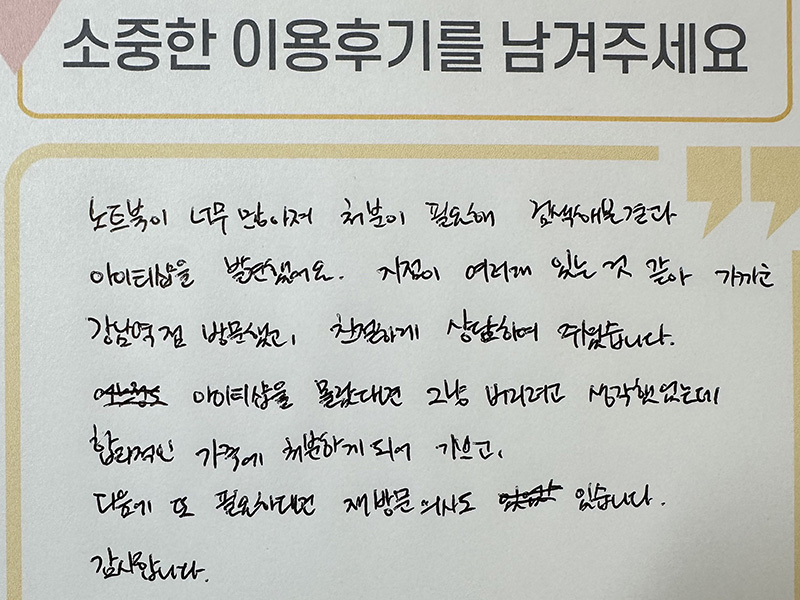 소중한 이용후기를 남겨주세요
노트북이 너무 많아져 처분이 필요해 검색해본결과
아이티샵을 발견했어요. 지점이 여러개 있는 것 같아 가까운
강남역점 방문했고, 친절하게 상담하여 주었습니다.
아이티샵을 몰랐다면 그냥 버리려고 생각했었는데
합리적인 가격에 처분하게 되어 기쁘고,
다음에 또 필요하다면 재방문 의사도 있습니다.
감사합니다.